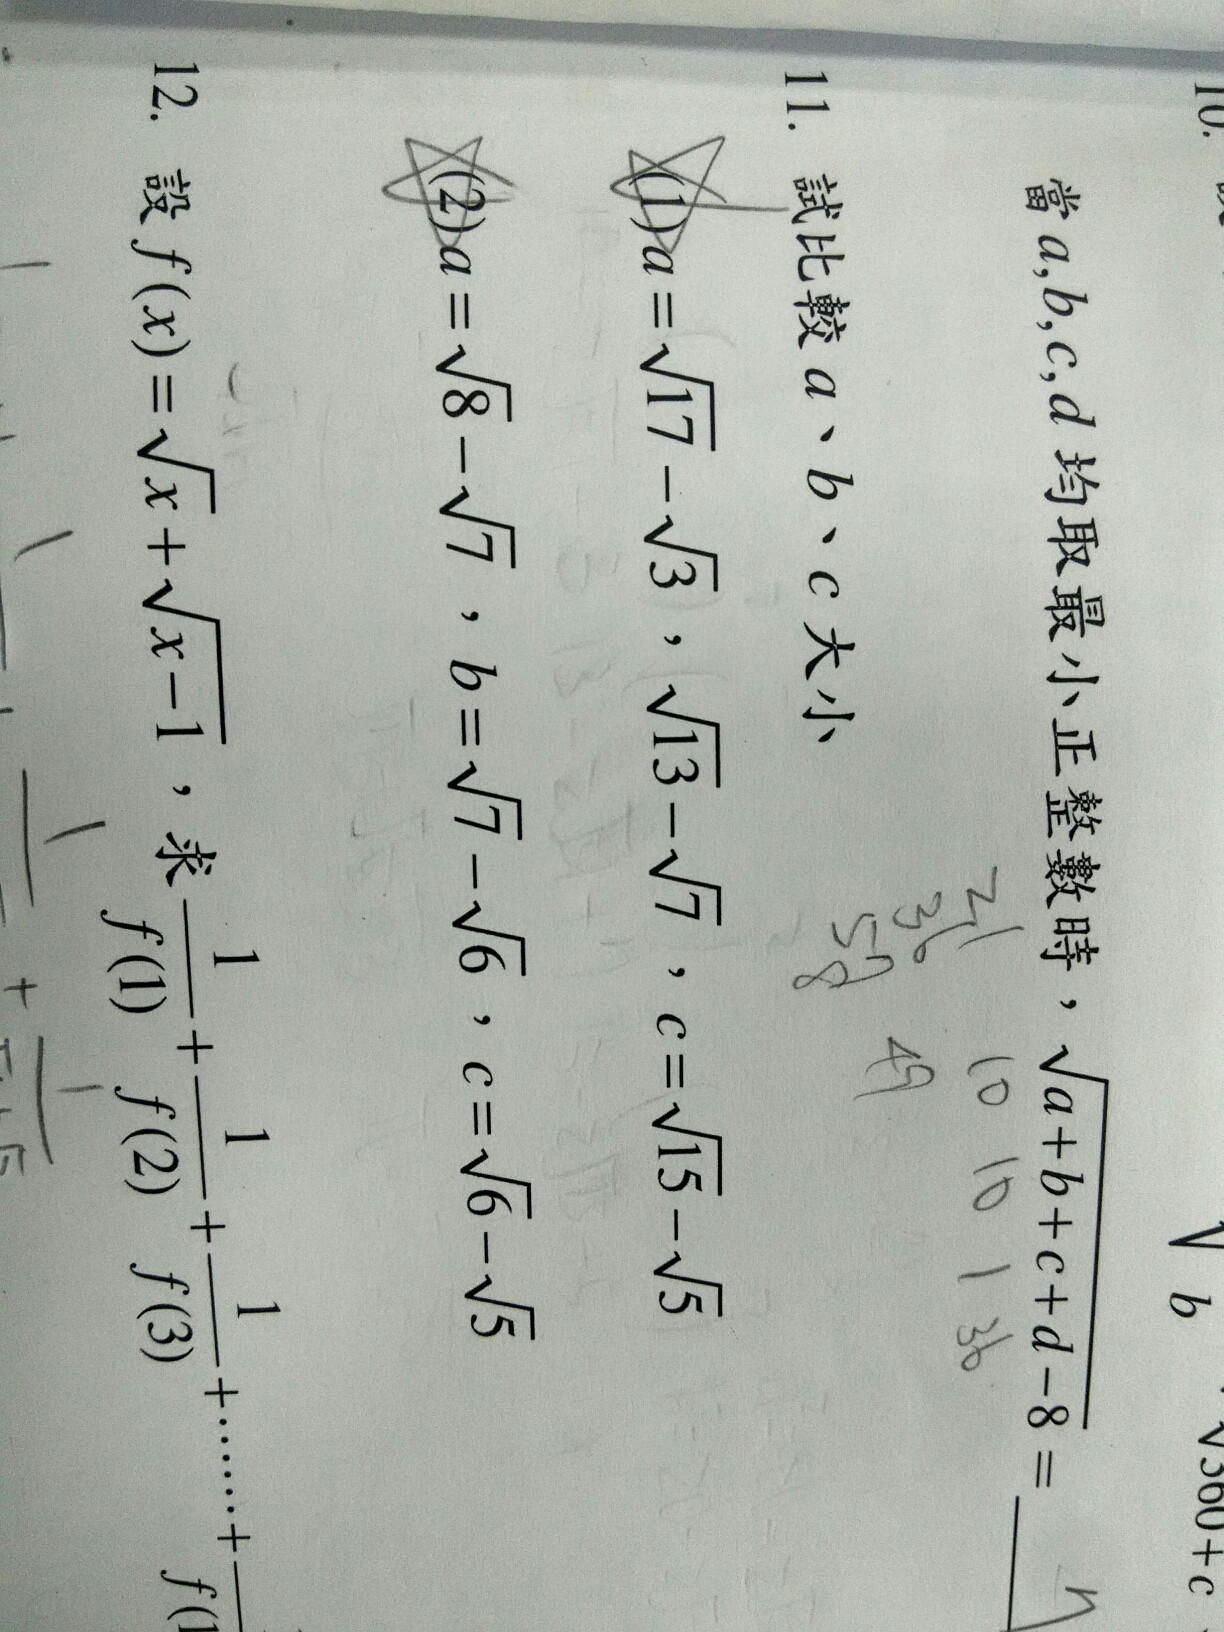 10.
√ b √360+c
當 a,b,c,d 均取最小正整數時，√(a+b+c+d−8) =
10 10 1 36
36
49
11. 試比較 a、b、c 大小
(1)a=√17−√3，√13−√7，c=√15−√5
(2)a=√8−√7，b=√7−√6，c=√6−√5
12. 設 f(x)=√x+√(x−1)，求 1/f(1)+1/f(2)+1/f(3)+......+
f(1